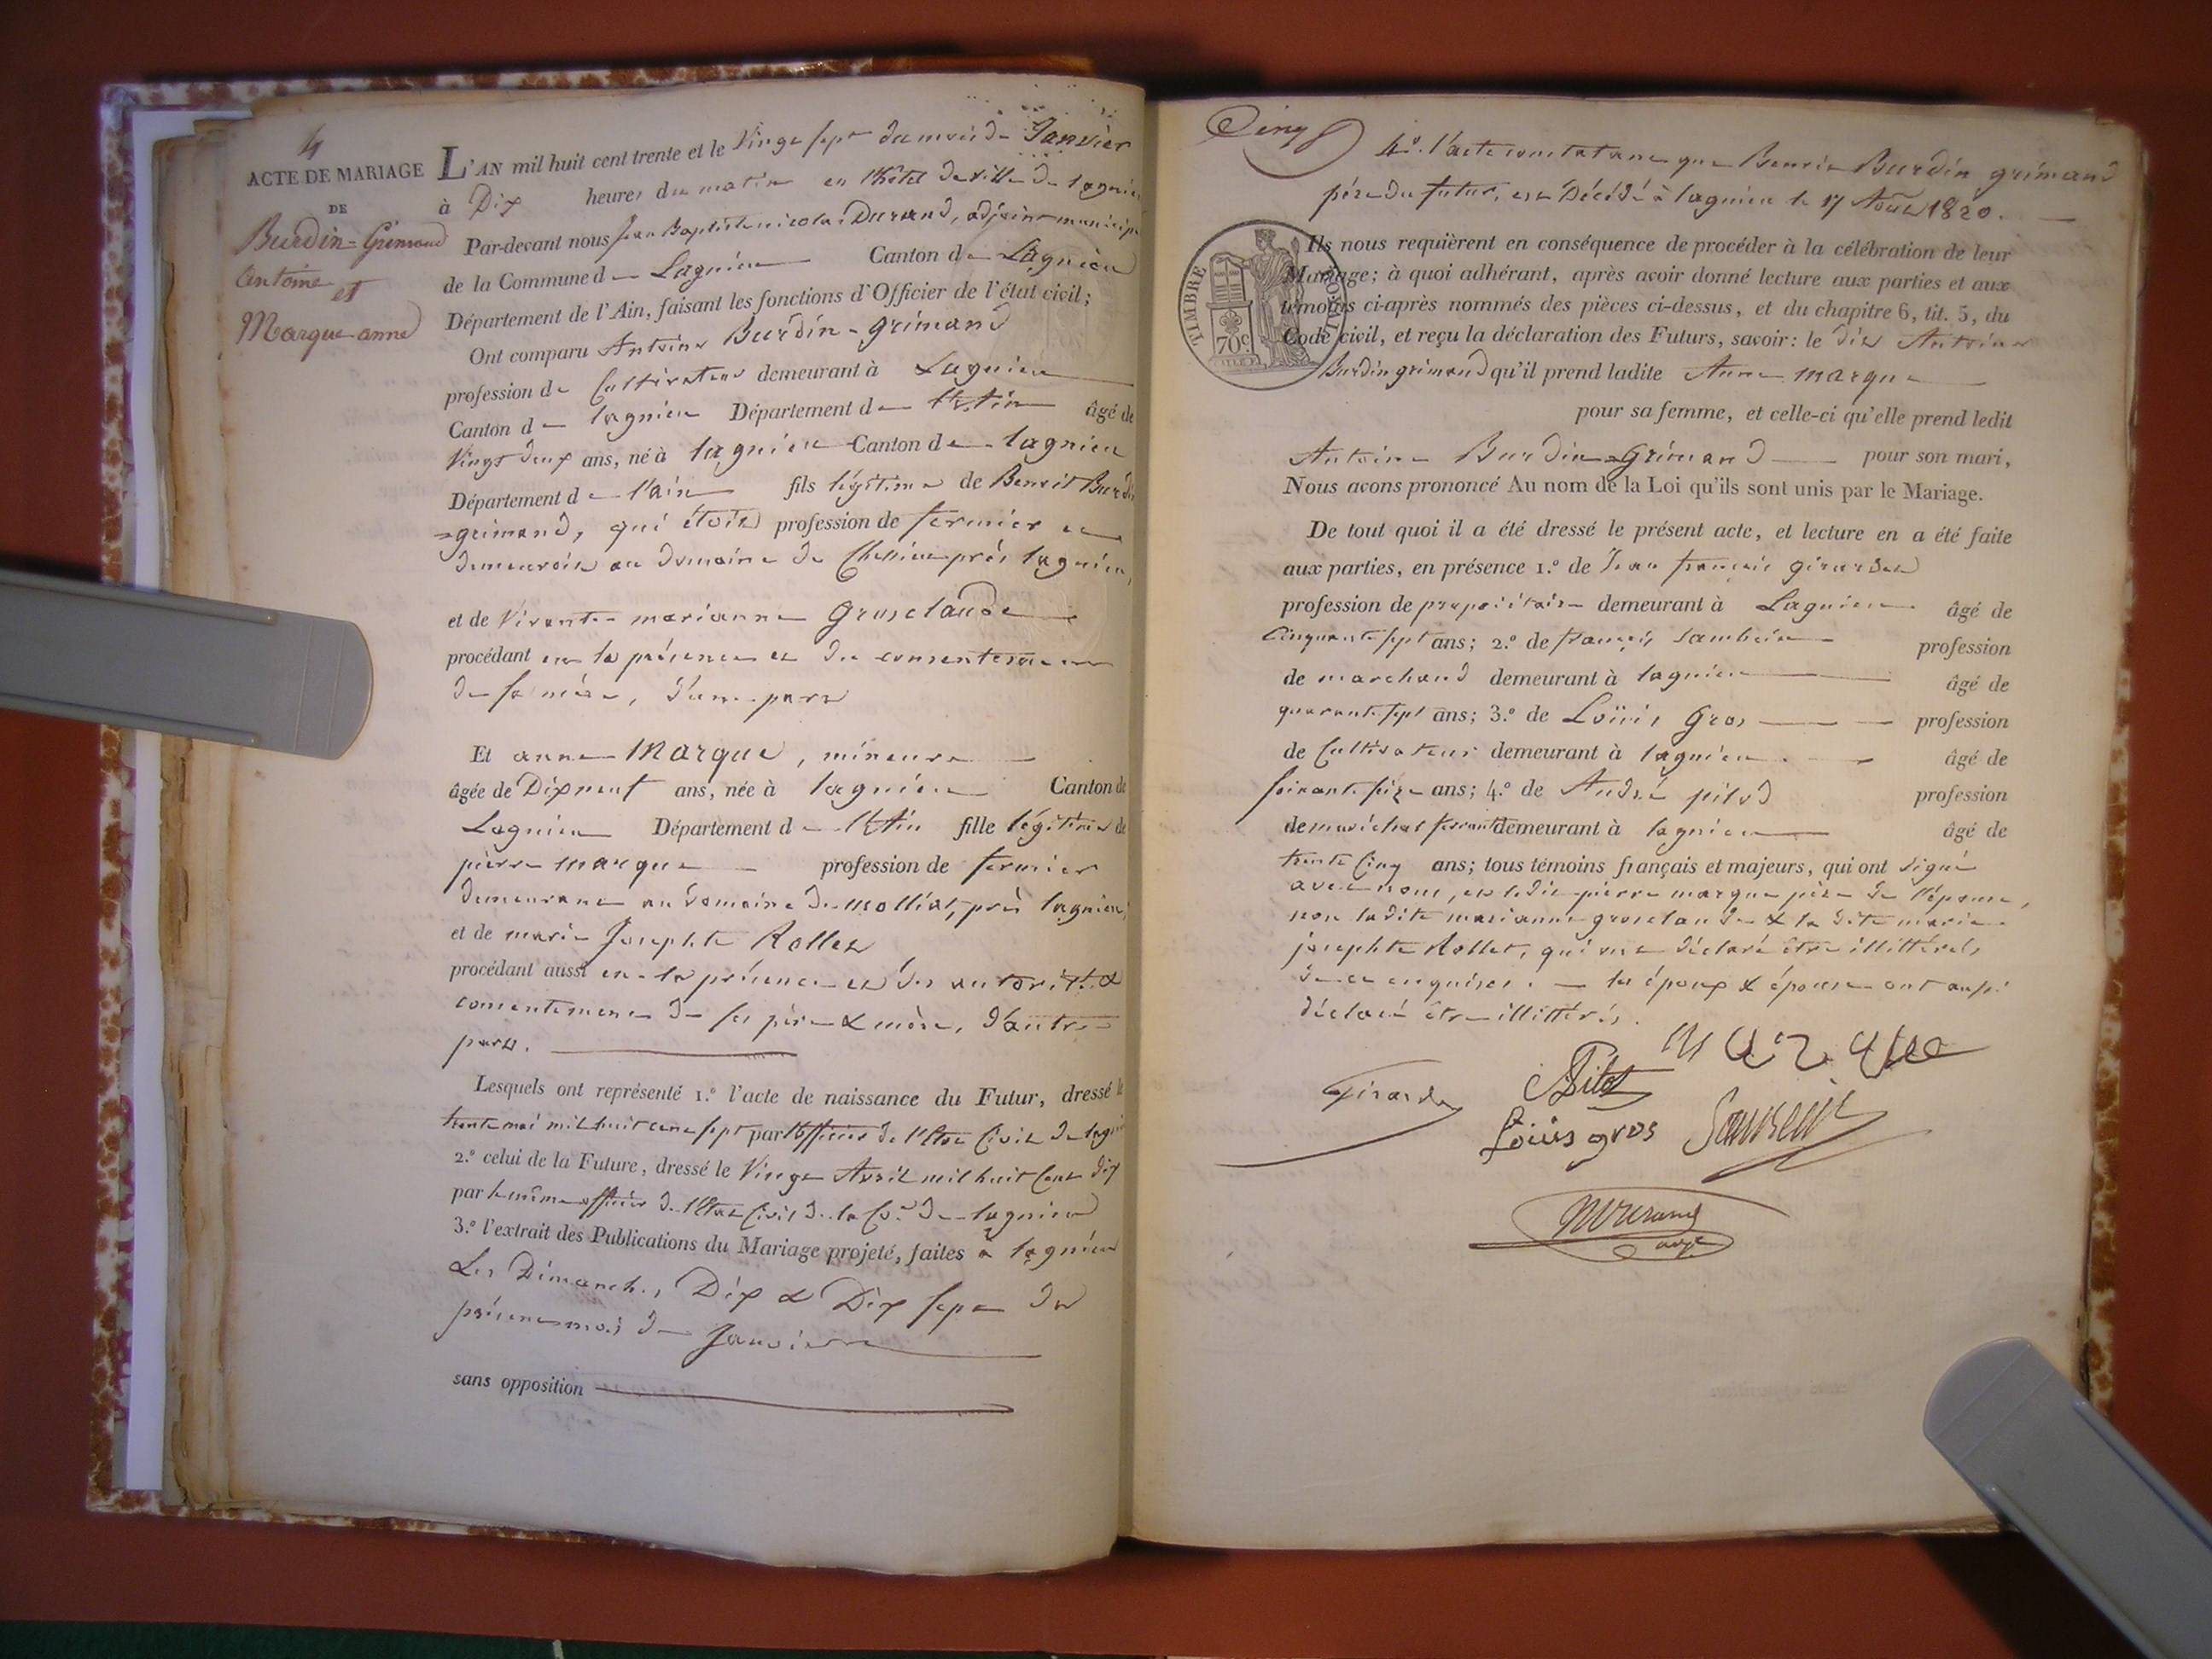 4
ACTE DE MARIAGE
DE
Burdin-Grimaud
antoine
et
Marque anne
L'AN mil huit cent trente et le Vingt sept du mois de Janvier
à Dix heures du matin en l'hôtel de ville de lagnieu
Par-devant nous Jean Baptiste nicolas Durand, adjoint municip
de la Commune de Lagnieu Canton de Lagnieu
Département de l'Ain, faisant les fonctions d'Officier de l'état civil;
Ont comparu Antoine Burdin-grimand
profession de Cultivateur demeurant à Lagnieu
Canton de lagnieu Département de l'Ain âgé de
Vingt deux ans, né à lagnieu Canton de lagnieu
Département de l'ain fils légitime de Benoit Burdin
=grimand, qui étoit profession de fermier et
demeuroit au domaine de près lagnieu,
et de Vivante marianne Grosclaude
procédant en la présence et du consentement
de sa mère, d'une part
Et anne Marque, mineure
âgée de Dixneuf ans, née à lagnieu Canton de
Lagnieu Département de l'Ain fille légitime de
pierre marque profession de fermier
demeurant au domaine de molliat, près lagnieu,
et de marie Josephte Rollet
procédant aussi en la présence et des autorité &
consentement de ses père & mère, d'autre
part.
Lesquels ont représenté 1.º l'acte de naissance du Futur, dressé le
trente mai mil huit cent sept par l'officier de l'Etat Civil de lagnieu
2.º celui de la Future, dressé le Vingt Avril mil huit Cent dix
par le même officier de l'Etat Civil de la Cne de lagnieu
3.º l'extrait des Publications du Mariage projeté, faites à lagnieu
Les Dimanches, Dix & Dix sept du
présent mois de Janvier
sans opposition
Cinq
4º. l'acte constatant que Benoit Burdin grimand
père du futur, est Décédé à lagnieu le 17 Aout 1820.
TIMBRE ROYAL
70c
Ils nous requièrent en conséquence de procéder à la célébration de leur
Mariage; à quoi adhérant, après avoir donné lecture aux parties et aux
témoins ci-après nommés des pièces ci-dessus, et du chapitre 6, tit. 5, du
Code civil, et reçu la déclaration des Futurs, savoir: le dit Antoine
Burdin grimand qu'il prend ladite Anne marque
pour sa femme, et celle-ci qu'elle prend ledit
Antoine Burdin=Grimand pour son mari,
Nous avons prononcé Au nom de la Loi qu'ils sont unis par le Mariage.
De tout quoi il a été dressé le présent acte, et lecture en a été faite
aux parties, en présence 1.º de Jean françois girardet
profession de propriétaire demeurant à Lagnieu âgé de
Cinquante sept ans; 2.º de françois profession
de marchand demeurant à lagnieu âgé de
quarante sept ans; 3.º de Loüis Gros profession
de Cultivateur demeurant à lagnieu âgé de
soixante seize ans; 4.º de André pilod profession
de maréchal ferrant demeurant à lagnieu âgé de
trente Cinq ans; tous témoins français et majeurs, qui ont signé
avec nous, et ledit pierre marque père de l'épouse,
non ladite marianne grosclaude & la dite marie
josephte Rollet, qui ont déclaré être illittérés
de ce enquises. — les époux & épouse ont aussi
déclaré être illittérés.
Marque
Girardet
Pilod
Loüis gros
Durand